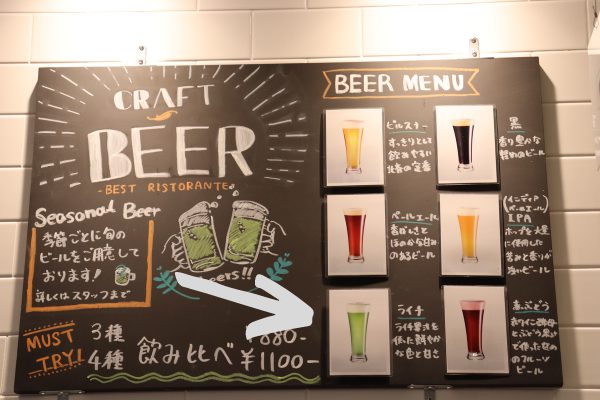 CRAFT
BEER
- BEST RISTORANTE -
Seasonal Beer
季節ごとに旬の
ビールをご用意して
おります!
詳しくはスタッフまで
MUST
TRY!
3種
4種 飲み比べ ¥1100-
BEER MENU
ピルスナー
すっきりとして
飲みやすい
定番
黒
香り豊かな
ビール
ペールエール
香ばしさと
ほのかな甘み
のあるビール
(インディア
ペールエール)
IPA
ホップを大量
に使用した
苦みと香りが
強いビール
ライチ
ライチ果汁を
使った鮮やか
な色と甘さ
赤ぶどう
赤ワイン酵母
とぶどう果汁
で作った
のフルーツ
ビール